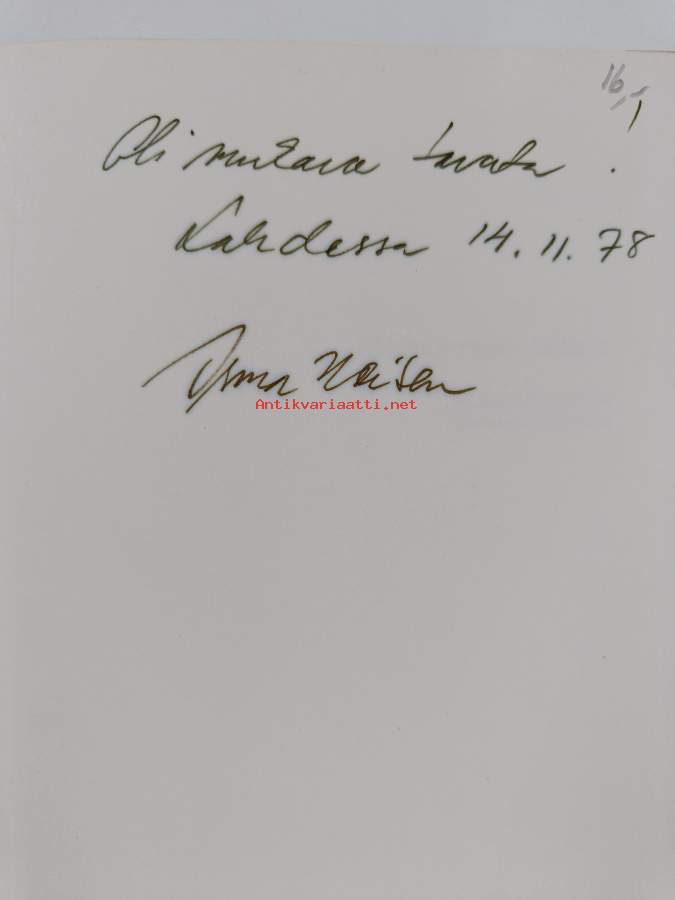 16,-
Oli mukava tavata!
Lahdessa 14.11.78
Antikvariaatti.net